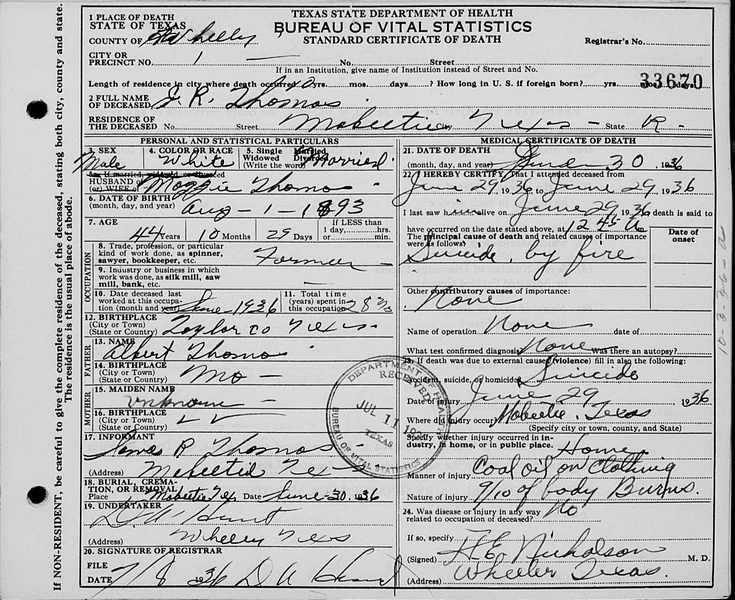 If NON-RESIDENT, be careful to give the complete residence of the deceased, stating both city, county and state.
The residence is the usual place of abode.
TEXAS STATE DEPARTMENT OF HEALTH
BUREAU OF VITAL STATISTICS
STANDARD CERTIFICATE OF DEATH
1 PLACE OF DEATH
STATE OF TEXAS
COUNTY OF
CITY OR
PRECINCT NO. 1 No. Street
Registrar's No.
If in an Institution, give name of Institution instead of Street and No.
Length of residence in city where death occurred yrs. mos. days? How long in U. S. if foreign born? yrs. mos. days
33670
2 FULL NAME
OF DECEASED J. R. Thomas
RESIDENCE OF
THE DECEASED No. Street Mobeetie City Texas State R-
PERSONAL AND STATISTICAL PARTICULARS
3. SEX Male
4. COLOR OR RACE White
5. Single Married Widowed Divorced (Write the word) Married
5a. If married, widowed or divorced
HUSBAND of
(or) WIFE of Maggie Thomas
6. DATE OF BIRTH
(month, day, and year) Aug - 1 - 1893
7. AGE 44 Years 10 Months 29 Days
If LESS than
1 day, hrs.
or min.
OCCUPATION
8. Trade, profession, or particular
kind of work done, as spinner,
sawyer, bookkeeper, etc. Farmer
9. Industry or business in which
work was done, as silk mill, saw
mill, bank, etc.
10. Date deceased last
worked at this occupation
(month and year) June 1936
11. Total time
(years) spent in
this occupation 28
12. BIRTHPLACE
(City or Town)
(State or Country) Taylor Co Texas
FATHER
13. NAME
Albert Thomas
14. BIRTHPLACE
(City or Town)
(State or Country) Mo
MOTHER
15. MAIDEN NAME
unknown
16. BIRTHPLACE
(City or Town)
(State or Country)
17. INFORMANT
James R Thomas
(Address) Mobeetie Tex
18. BURIAL, CREMATION, OR REMOVAL
Place Mobeetie Tex Date June-30-1936
19. UNDERTAKER
D. A. Hunt
(Address)
20. SIGNATURE OF REGISTRAR
FILE
DATE 7/8 36 D A Hunt
DEPARTMENT OF HEALTH
RECEIVED
JUL 11
TEXAS
BUREAU OF VITAL STATISTICS
MEDICAL CERTIFICATE OF DEATH
21. DATE OF DEATH
(month, day, and year) June 30 1936
22. I HEREBY CERTIFY That I attended deceased from
June 29, 1936 to June 29, 1936
I last saw him alive on June 29, 1936 death is said to
have occurred on the date stated above, at 12 45 A
The principal cause of death and related causes of importance
were as follows:
Date of
onset
Suicide, by fire
Other contributory causes of importance:
None
Name of operation None date of
What test confirmed diagnosis None Was there an autopsy?
23. If death was due to external causes (violence) fill in also the following:
Accident, suicide, or homicide Suicide
Date of injury June 29 1936
Where did injury occur? Mobeetie, Texas
(Specify city or town, county, and State)
Specify whether injury occurred in industry, in home, or in public place. Home
Manner of injury Coal oil on clothing
Nature of injury 9/10 of body Burns.
24. Was disease or injury in any way
related to occupation of deceased? No
If so, specify
(Signed) H. E. Nicholson M. D.
(Address) Wheeler Texas.